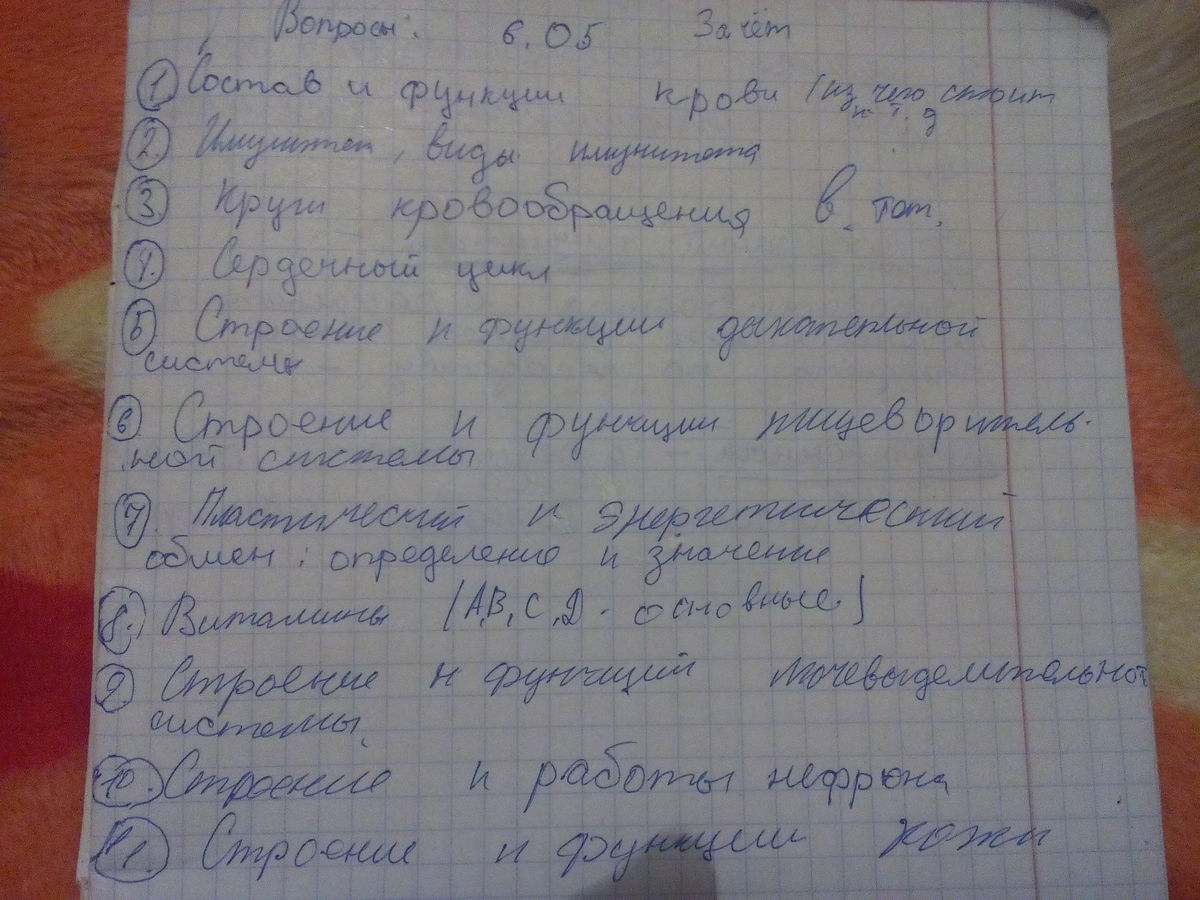 Вопросы: 6.05 Зачёт
1. Состав и функции крови (из чего стоит
и т.д
2. Имунитет, виды имунитета
3 Круги кровообращения
4. Сердечный цикл
5 Строение и функции дыхательной
системы
6 Строение и функции пищеворитель-
ной системы
7 Пластический и энергетический
обмен: определение и значение
8. Витамины (А,В,С,D - основные)
9. Строение и функций мочевыделительной
системы
10. Строение и работы нефрона
11. Строение и функции кожи